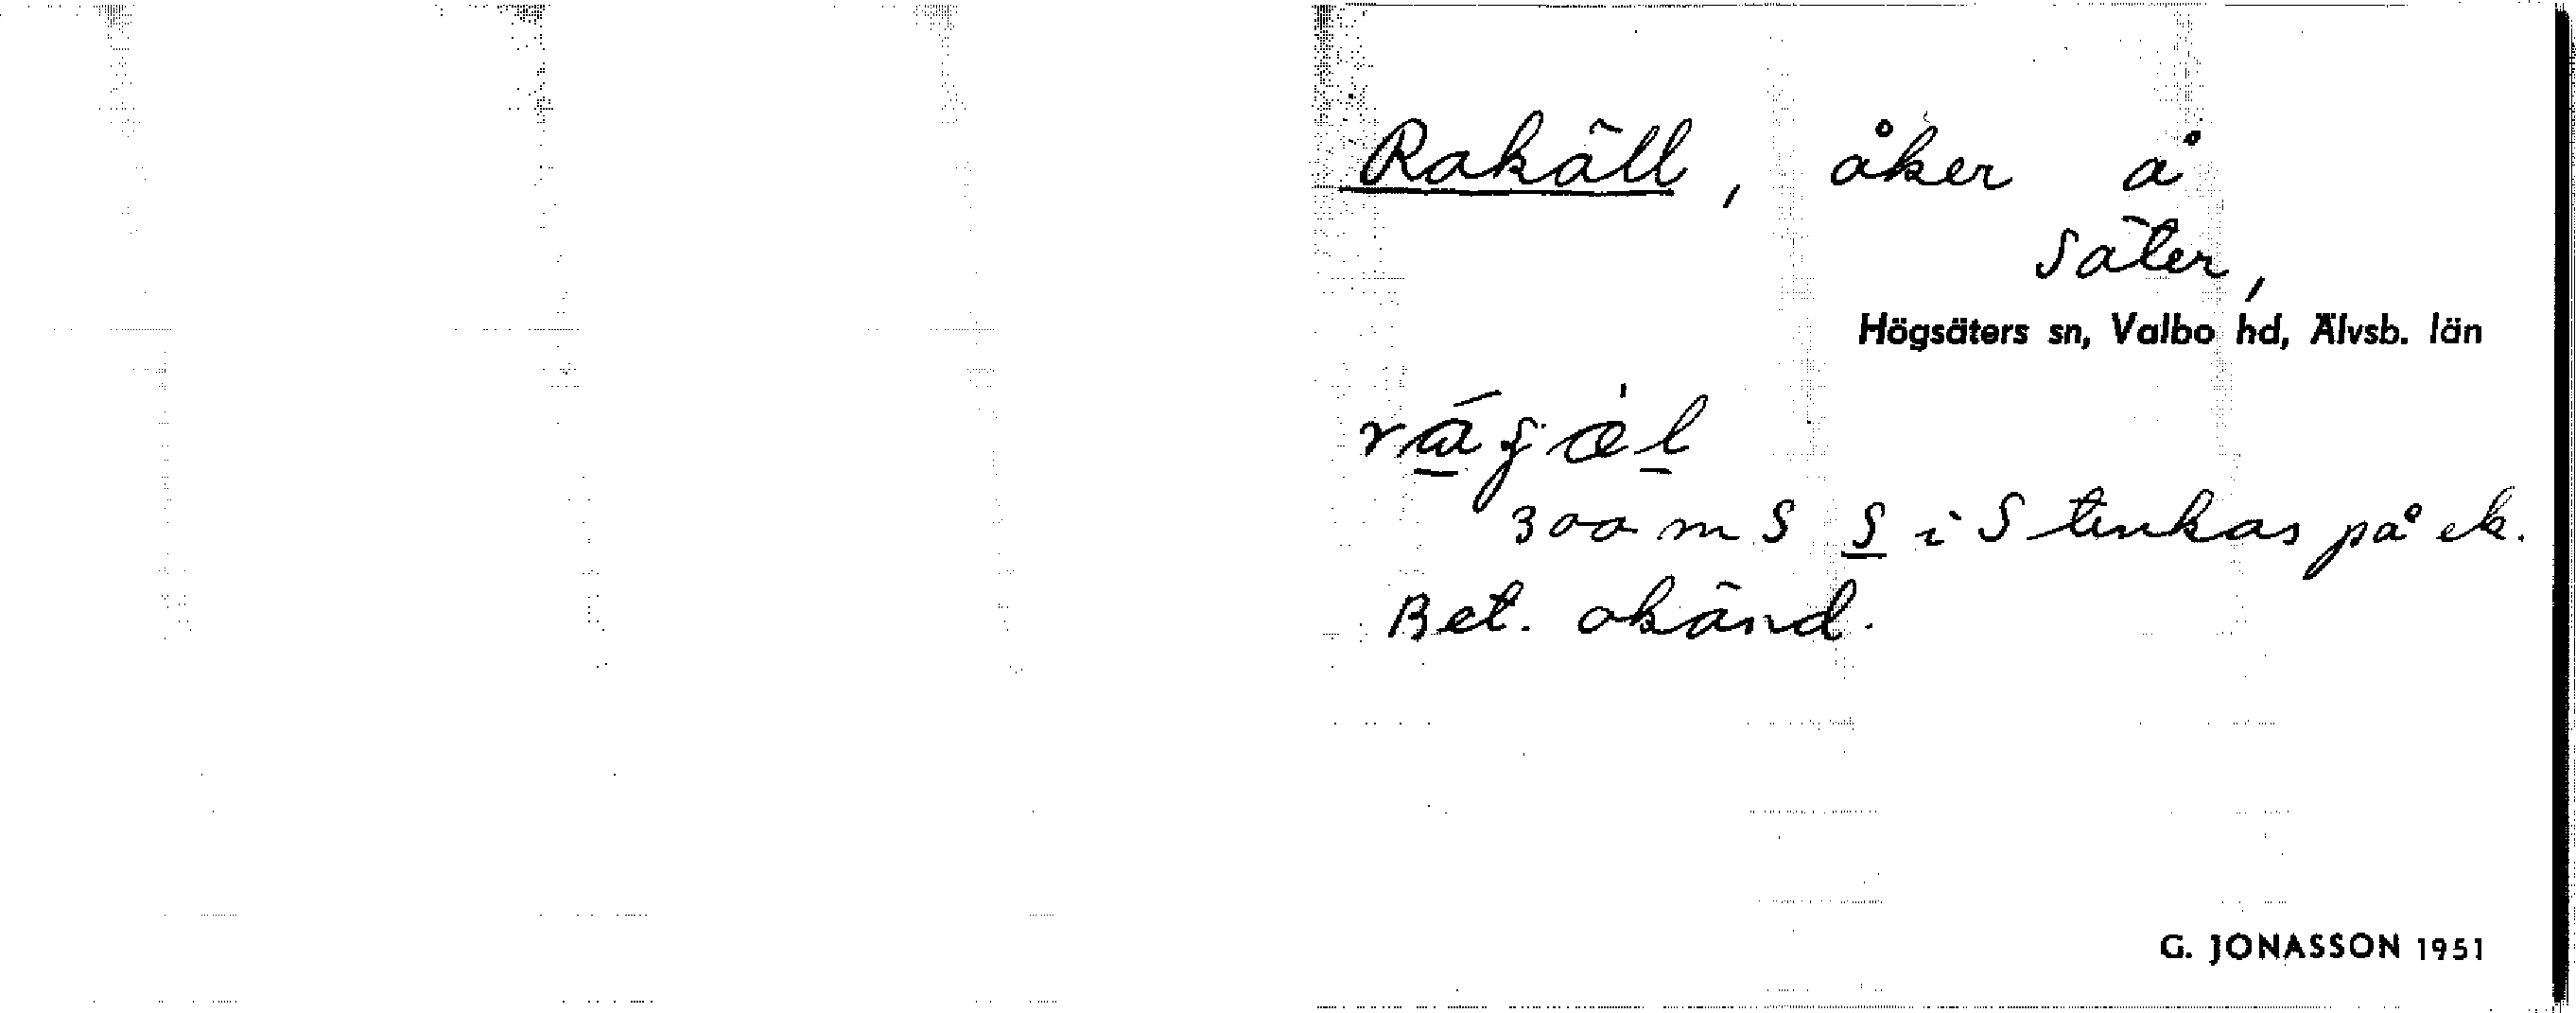 Rakäll, åker å
Säter,
Högsäters sn, Valbo hd, Älvsb. län
300 m S S i Stenkas på ek.
Bet. okänd.
G. JONASSON 1951